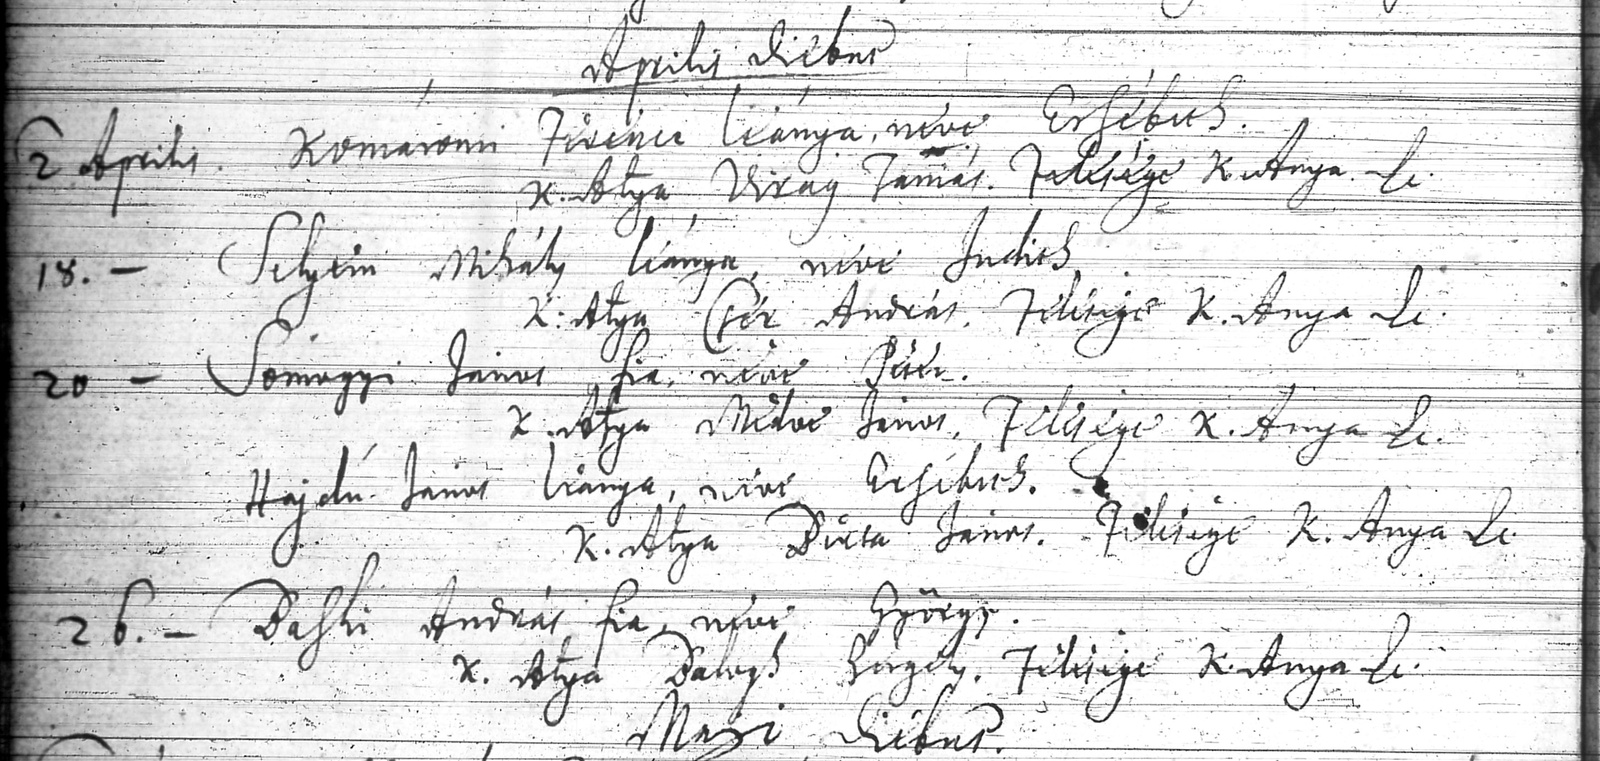 Aprilis diebus
2 Aprilis. Komáromi Ferencz leánya, neve Ersébeth.
K. Attya Virág Tamás. Felesége K. Anya Lc.
18. – Selyém Mihály leánya, neve Judith
K. Attya Csér András. Felesége K. Anya Lc.
20 – Somogyi János fia, neve Péter.
K. Attya János, Felesége K. Anya Lc.
Hajdú János leánya, neve Ersébeth.
K. Attya János. Felesége K. Anya Lc.
26. – András fia, neve György.
K. Attya Balogh Gergely. Felesége K. Anya Lc.
Maji diebus.